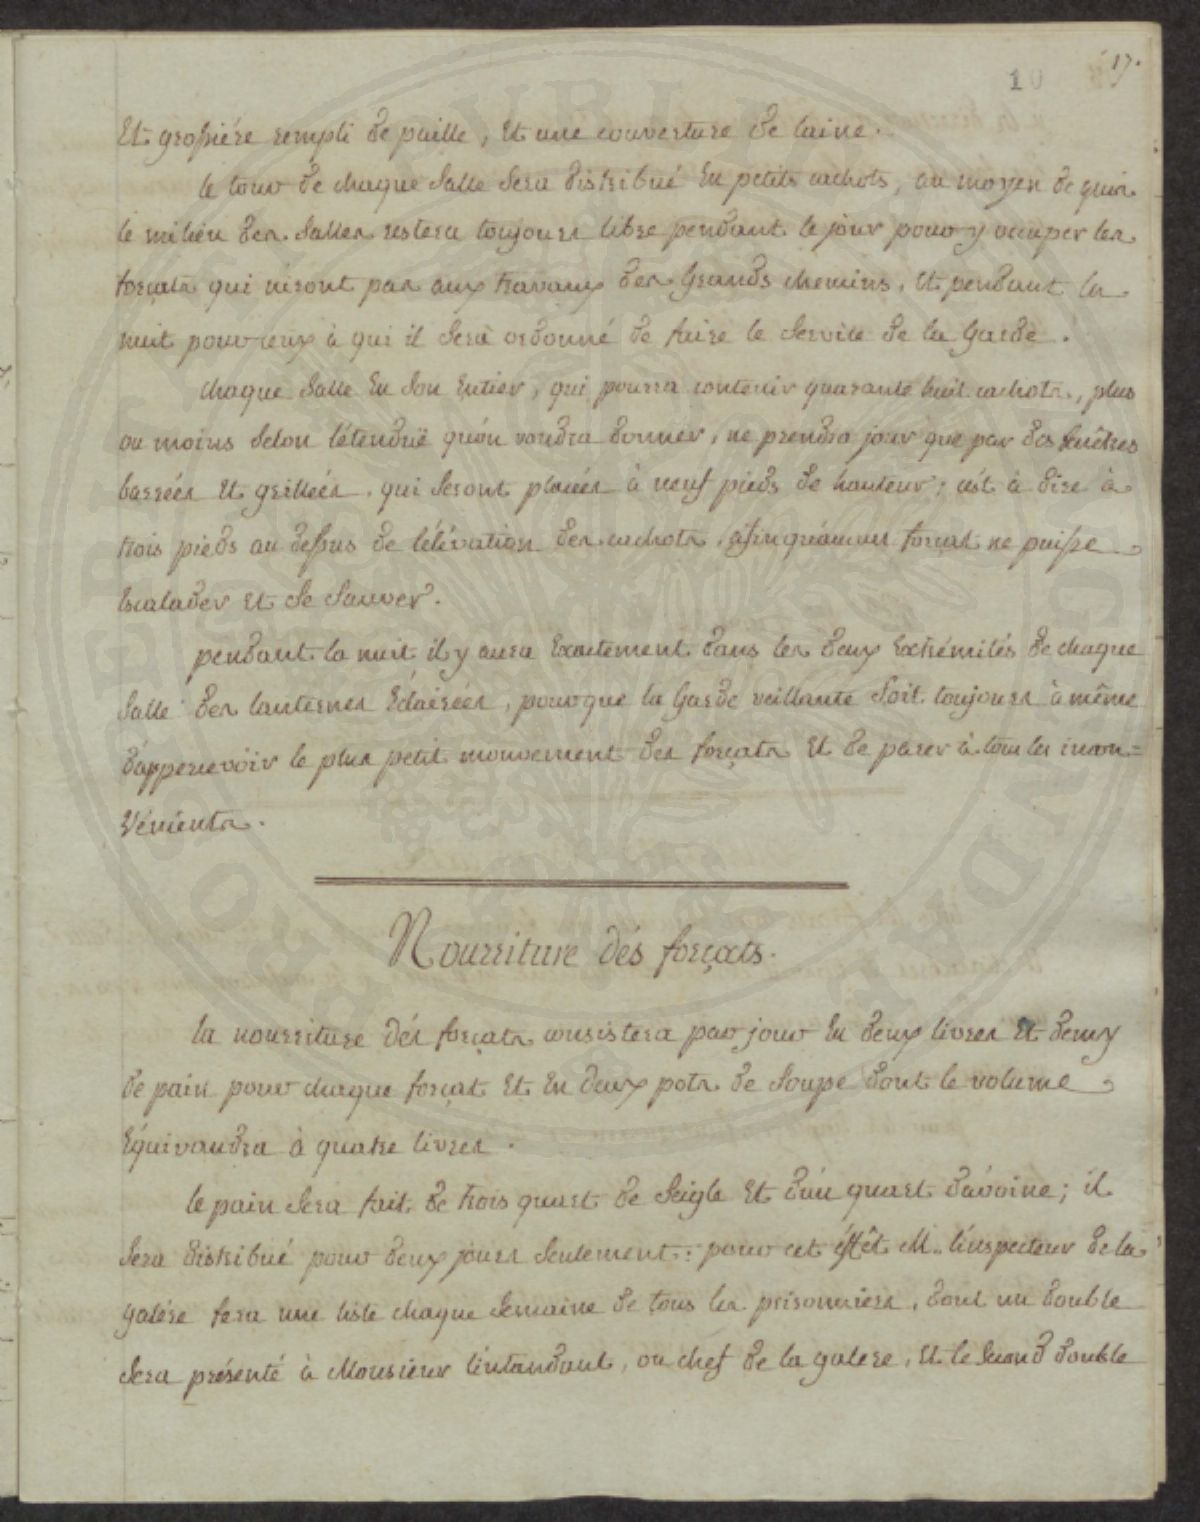 17.
10
Et grossiére rempli de paille, Et une couverture de laine.
le tour de chaque Salle Sera distribué En petits cachots, au moyen de quoi
le milieu des Salles restera toujours libre pendant le jour pour y occuper les
forçats qui n'iront pas aux travaux des Grands chemins, Et pendant la
nuit pour ceux à qui il Sera ordonné de faire le Service de la Garde.
chaque Salle En Son Entier, qui pourra contenir quarante huit cachots, plus
ou moins Selon l'étenduë qu'on voudra donner, ne prendra jour que par des fenêtres
barrées Et grillées, qui Seront placées à neuf pieds de hauteur; c'est à dire à
trois pieds au dessus de l'élévation des cachots, afin qu'aucun forçat ne puisse
Escalader Et Se Sauver.
pendant la nuit il y aura Exactement dans les deux Extrémités de chaque
Salle des lanternes Eclairées, pour que la Garde veillante Soit toujours à même
d'appercevoir le plus petit mouvement des forçats Et de parer à tous les incon=
Vénients.
Nourriture dés forçats.
la nourriture dés forçats consistera par jour En deux livres Et demy
de pain pour chaque forçat Et En deux pots de Soupe dont le volume
Equivaudra à quatre livres.
le pain Sera fait de trois quart de Seigle Et d'un quart d'avoine; il
Sera distribué pour deux jours Seulement: pour cet éffêt M. l'inspecteur de la
galére fera une liste chaque Semaine de tous les prisonniers, dont un double
Sera présenté à Monsieur l'intandant, ou chef de la galere, Et le Second double